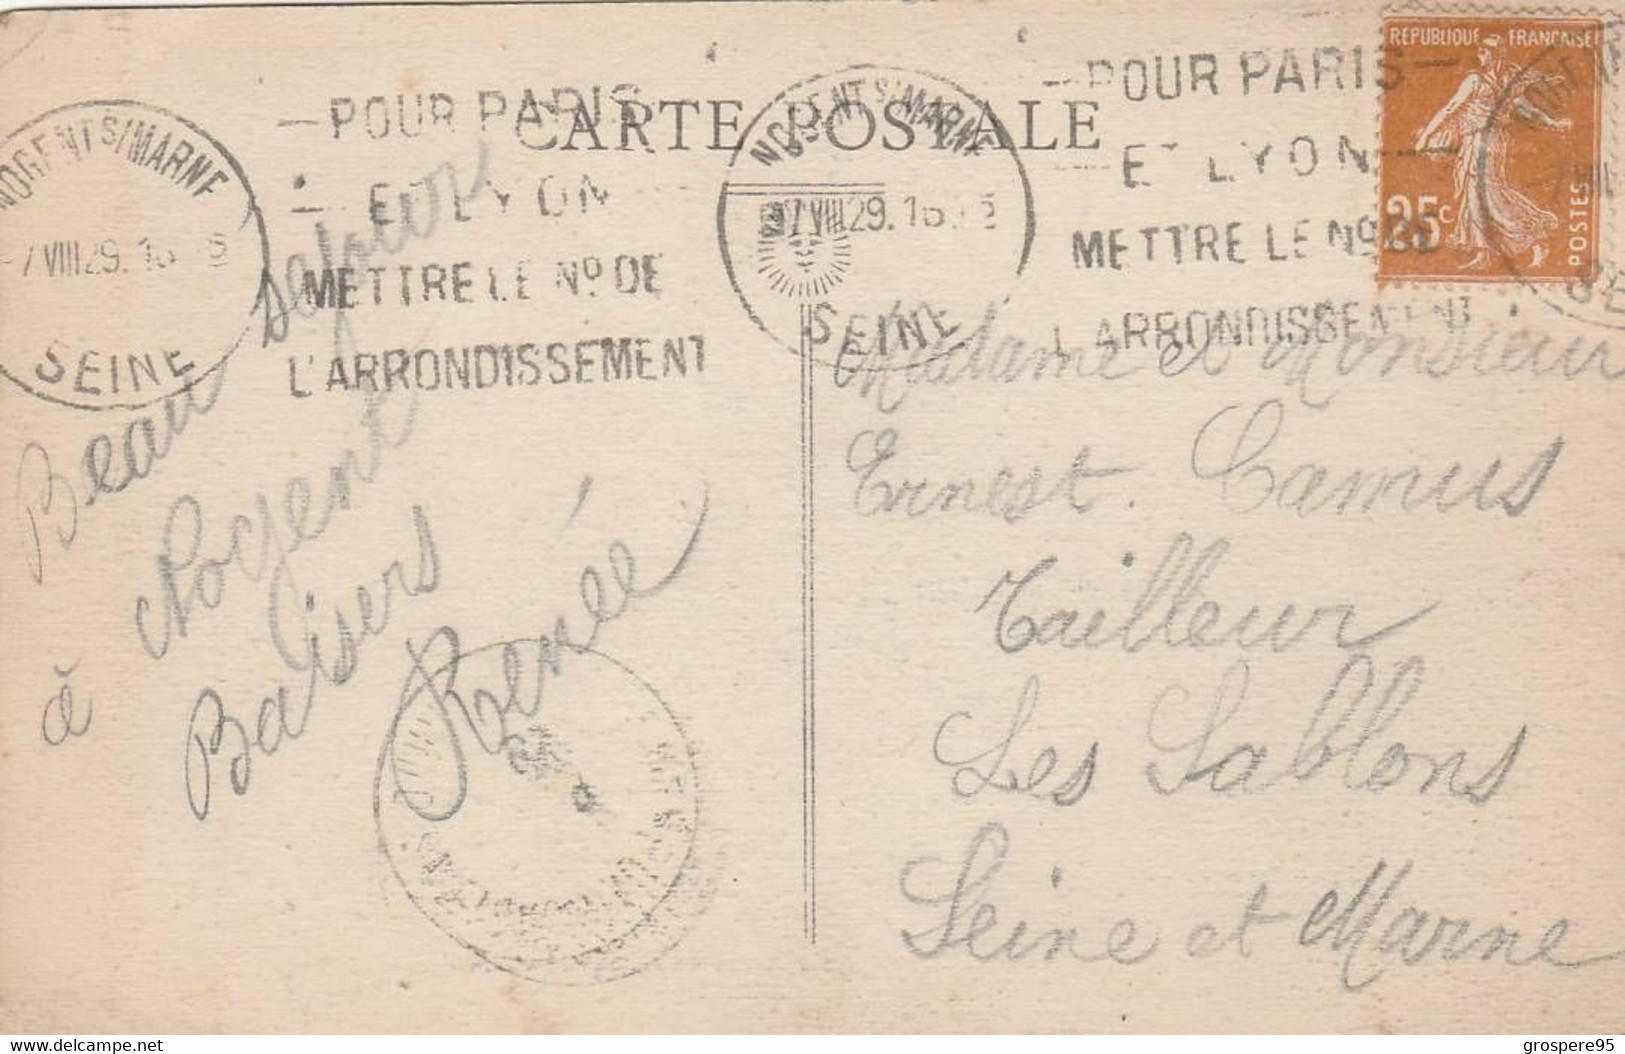 CARTE POSTALE
NOGENT S/MARNE
7 VIII 29. 16
SEINE
—POUR PARIS
— ET LYON
METTRE LE Nº DE
L'ARRONDISSEMENT
NOGENT S/MARNE
7 VIII 29. 16
SEINE
—POUR PARIS—
— ET LYON—
METTRE LE Nº DE
L'ARRONDISSEMENT
REPUBLIQUE FRANÇAISE
25c
POSTES
Beau séjour
à Nogent
Baisers
Renée
Madame et Monsieur
Ernest. Camus
Tailleur
Les Sablons
Seine et Marne
delcampe.net
grospere95